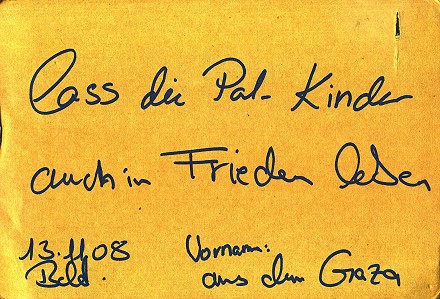 Lass die Pal- Kinder
auch in Frieden leben
13.11.08 Vornam:
aus dem Gaza